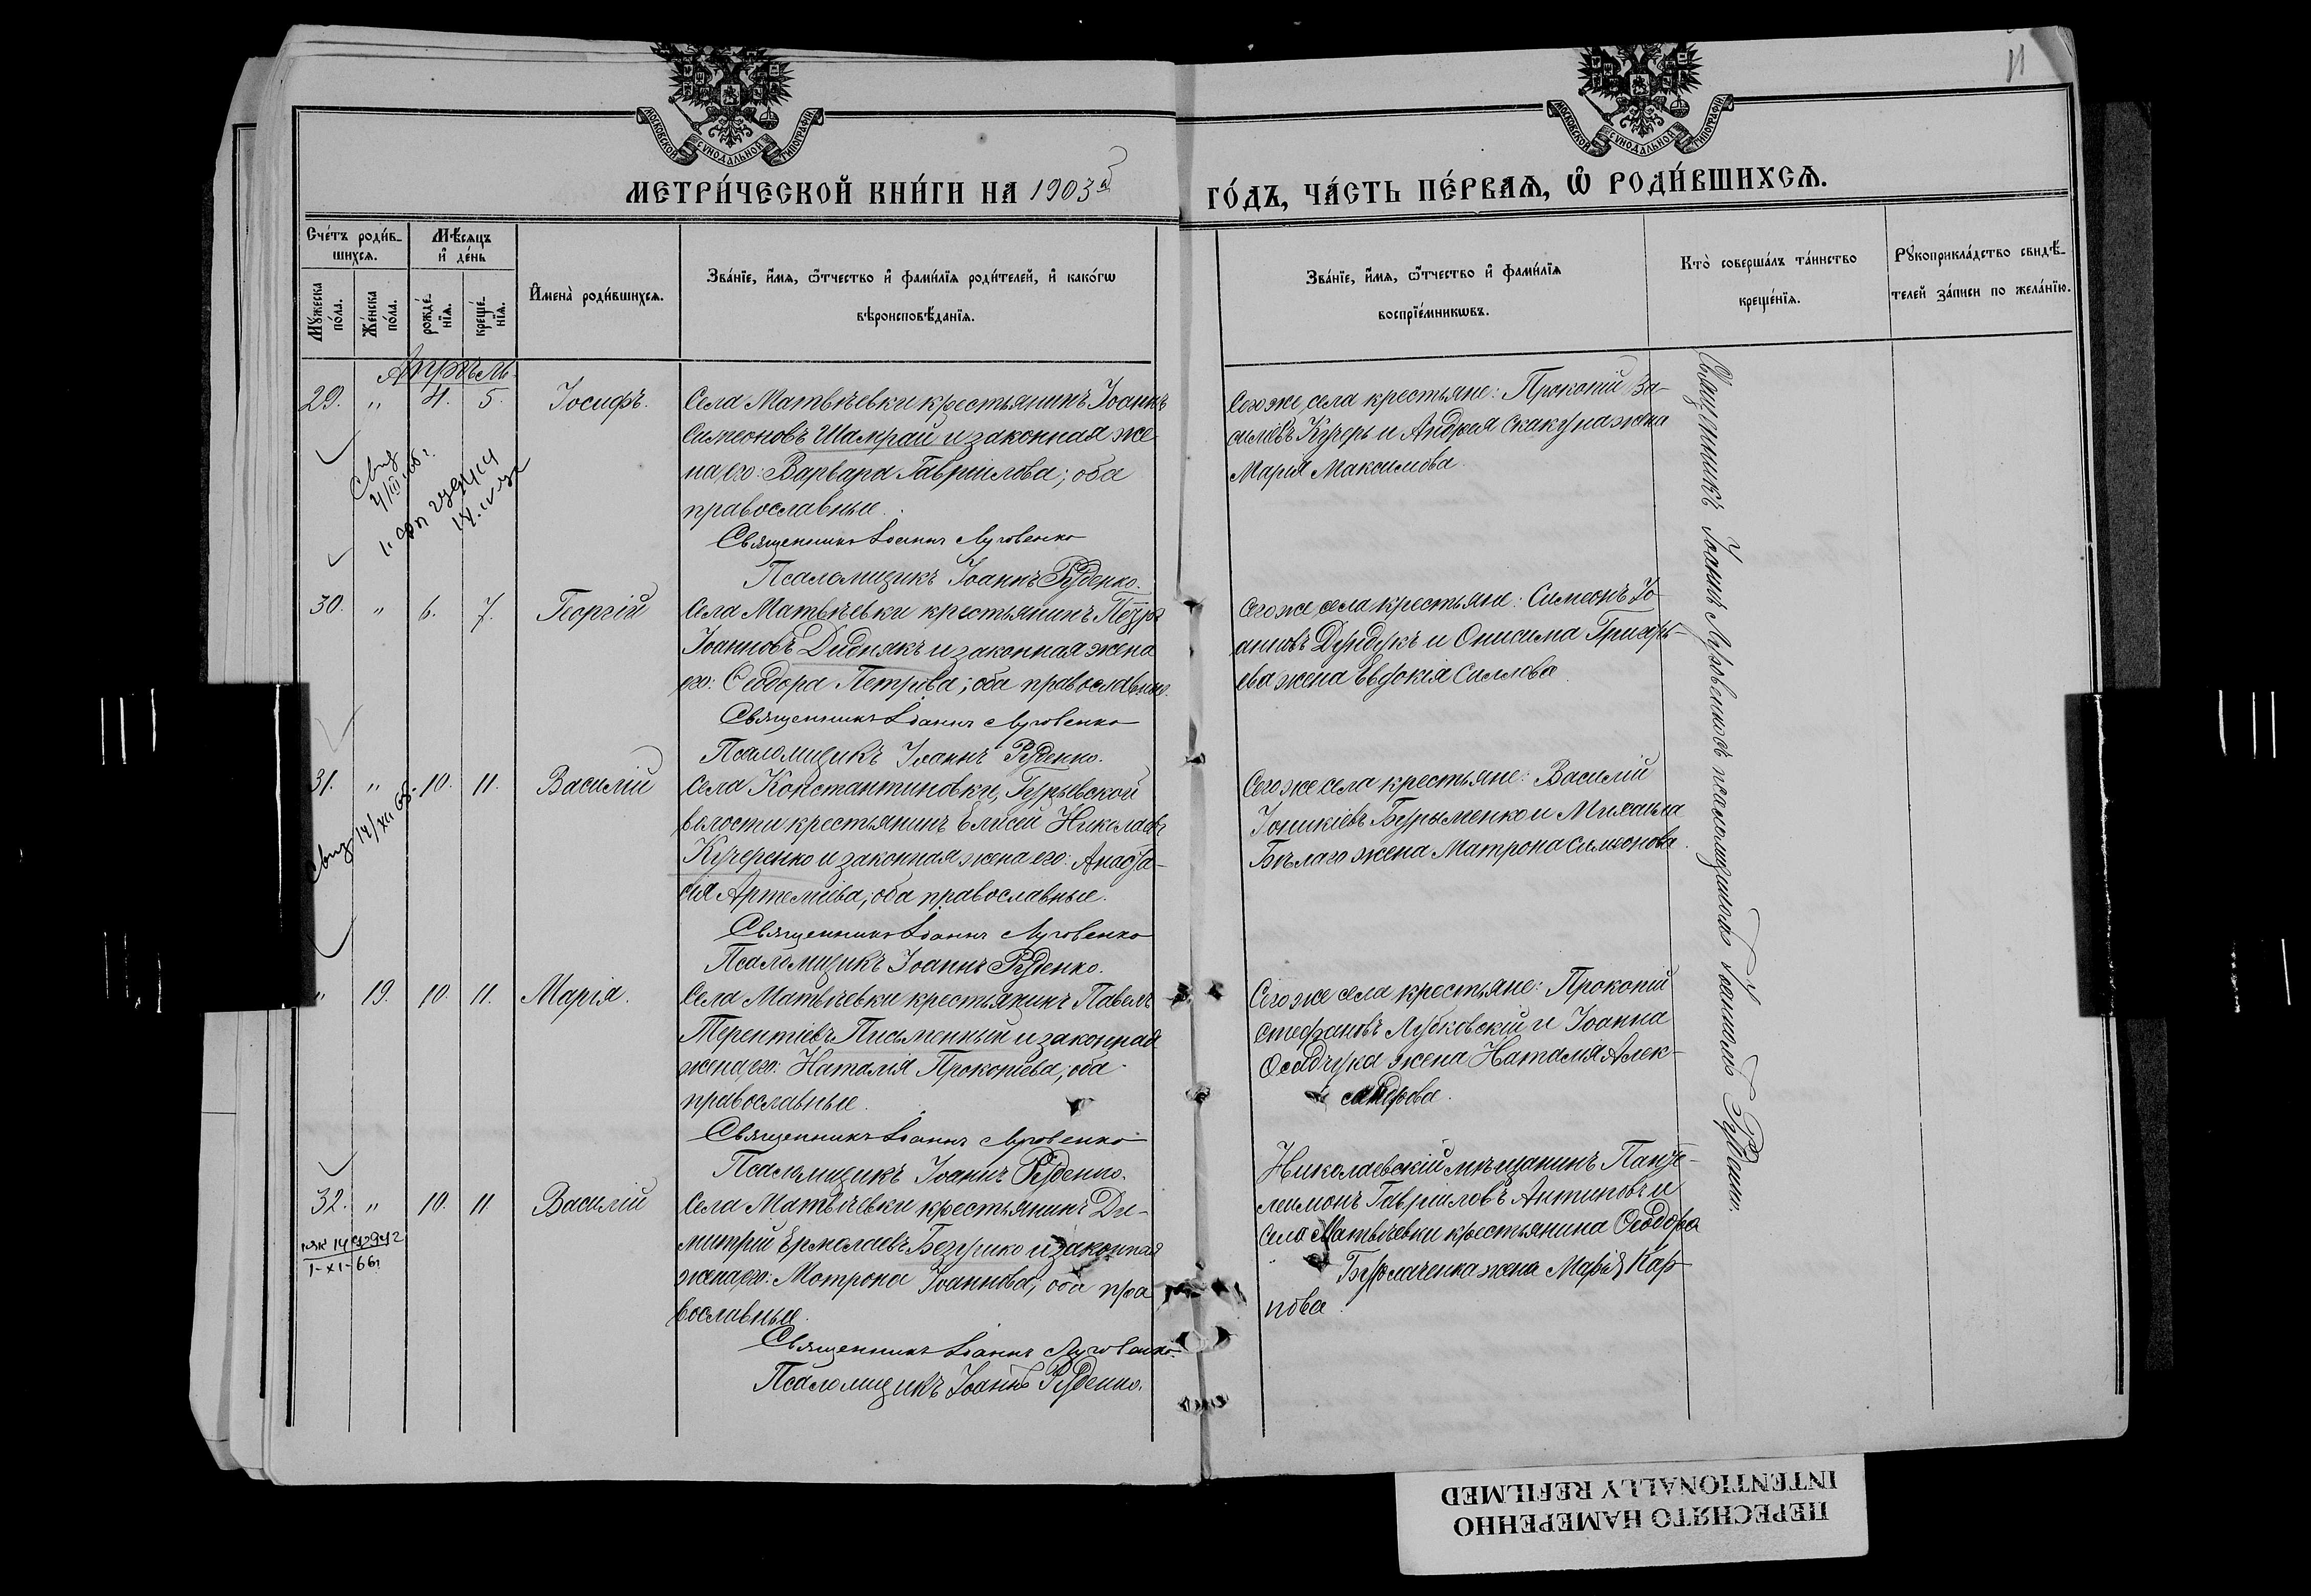 МОСКОВСКОЙ СѴНОДАЛЬНОЙ ТИПОГРАФІИ
МОСКОВСКОЙ СѴНОДАЛЬНОЙ ТИПОГРАФІИ
11
МЕТРИ́ЧЕСКОЙ КНИ́ГИ НА 1903й
ГО́ДЪ, ЧА́СТЬ ПЕ́РВАѦ, Ѡ҆ РОДИ́ВШИХСѦ.
Сче́тъ роди́в-
шихсѧ.
Мѣ́сѧцъ
и҆ де́нь
Мꙋ́жеска
по́ла.
Же́нска
по́ла.
рожде́-
нїѧ.
креще́-
нїѧ.
И҆мена̀ роди́вшихсѧ.
Зва́нїе, и҆́мѧ, ѻ҆́тчество и҆ фами́лїѧ роди́телей, и҆ како́гѡ
вѣроисповѣ́данїѧ.
Зва́нїе, и҆́мѧ, ѻ҆́тчество и҆ фами́лїѧ
воспрїе́мникѡвъ.
Кто̀ соверша́лъ та́инство
креще́нїѧ.
Рꙋкоприкла́дство свидѣ́-
телей за́писи по жела́нїю.
Апрѣль.
29. " 4. 5. Іосифъ.
Села Матвѣевки крестьянинъ Іоаннъ
Симеоновъ Шамрай и законная же
на его: Варвара Гавріилова; оба
православные.
Священникъ Іоаннъ Луговенко
Псаломщикъ Іоаннъ Руденко.
Сего же села крестьяне: Прокопій Ва-
силіевъ Кучеръ и Андрея Скакуна жена
Марія Максимова.
30. " 6. 7. Георгій
Села Матвѣевки крестьянинъ Петръ
Іоанновъ Дидиякъ и законная жена
его: Ѳеодора Петрова; оба православные.
Священникъ Іоаннъ Луговенко
Псаломщикъ Іоаннъ Руденко.
Сего же села крестьяне: Симеонъ Іо-
анновъ Дундукъ и Онисима Григорь-
ева жена Евдокія Силлова.
31. " 10. 11. Василій
Свид 14/XII
Села Константиновки,
волости крестьянинъ Елисей Николаевъ
Кучеренко и законная жена его: Анаста-
сія Артеміева; оба православные.
Священникъ Іоаннъ Луговенко
Псаломщикъ Іоаннъ Руденко.
Сего же села крестьяне: Василій
Іоникіевъ Бурыменко и Михаила
Бѣлаго жена Матрона Симеонова.
" 19. 10. 11. Марія.
Села Матвѣевки крестьянинъ Павелъ
Терентіевъ Письменный и законная
жена его: Наталія Прокопіева; оба
православные.
Священникъ Іоаннъ Луговенко
Псаломщикъ Іоаннъ Руденко.
Сего же села крестьяне: Прокопій
Стефановъ Лубковскій и Іоанна
Осадчука жена Наталія Алек-
сандрова.
32. " 10. 11. Василій
Села Матвѣевки крестьянинъ Ди-
митрій Ермолаевъ и законная
жена его: Матрона Іоаннова; оба пра
вославные.
Священникъ Іоаннъ Луговенко
Псаломщикъ Іоаннъ Руденко.
Николаевскій мѣщанинъ Панте-
леимонъ Гавріиловъ Антиповъ и
села Матвѣевки крестьянина Ѳеодора
Бурлаченка жена Марія Кар
пова.
Священникъ Іоаннъ Луговенко съ псаломщикомъ Іоанномъ Руденко.
ПЕРЕСНЯТО НАМЕРЕННО
INTENTIONALLY REFILMED